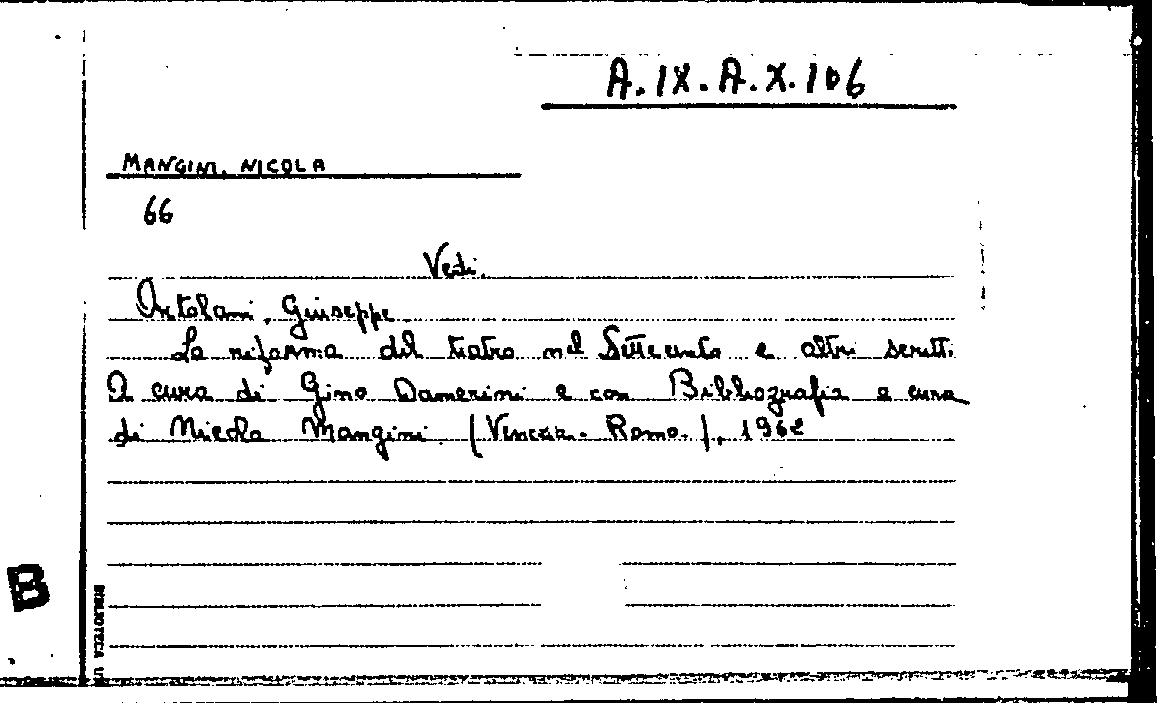 A.IX.A.X.106
MANGINI, NICOLA
66
Vedi.
Ortolani, Giuseppe.
La riforma del teatro nel Settecento e altri scritti.
A cura di Gino Damerini e con Bibliografia a cura
di Nicola Mangini. (Venezia-Roma.), 1962
B
BIBLIOTECA